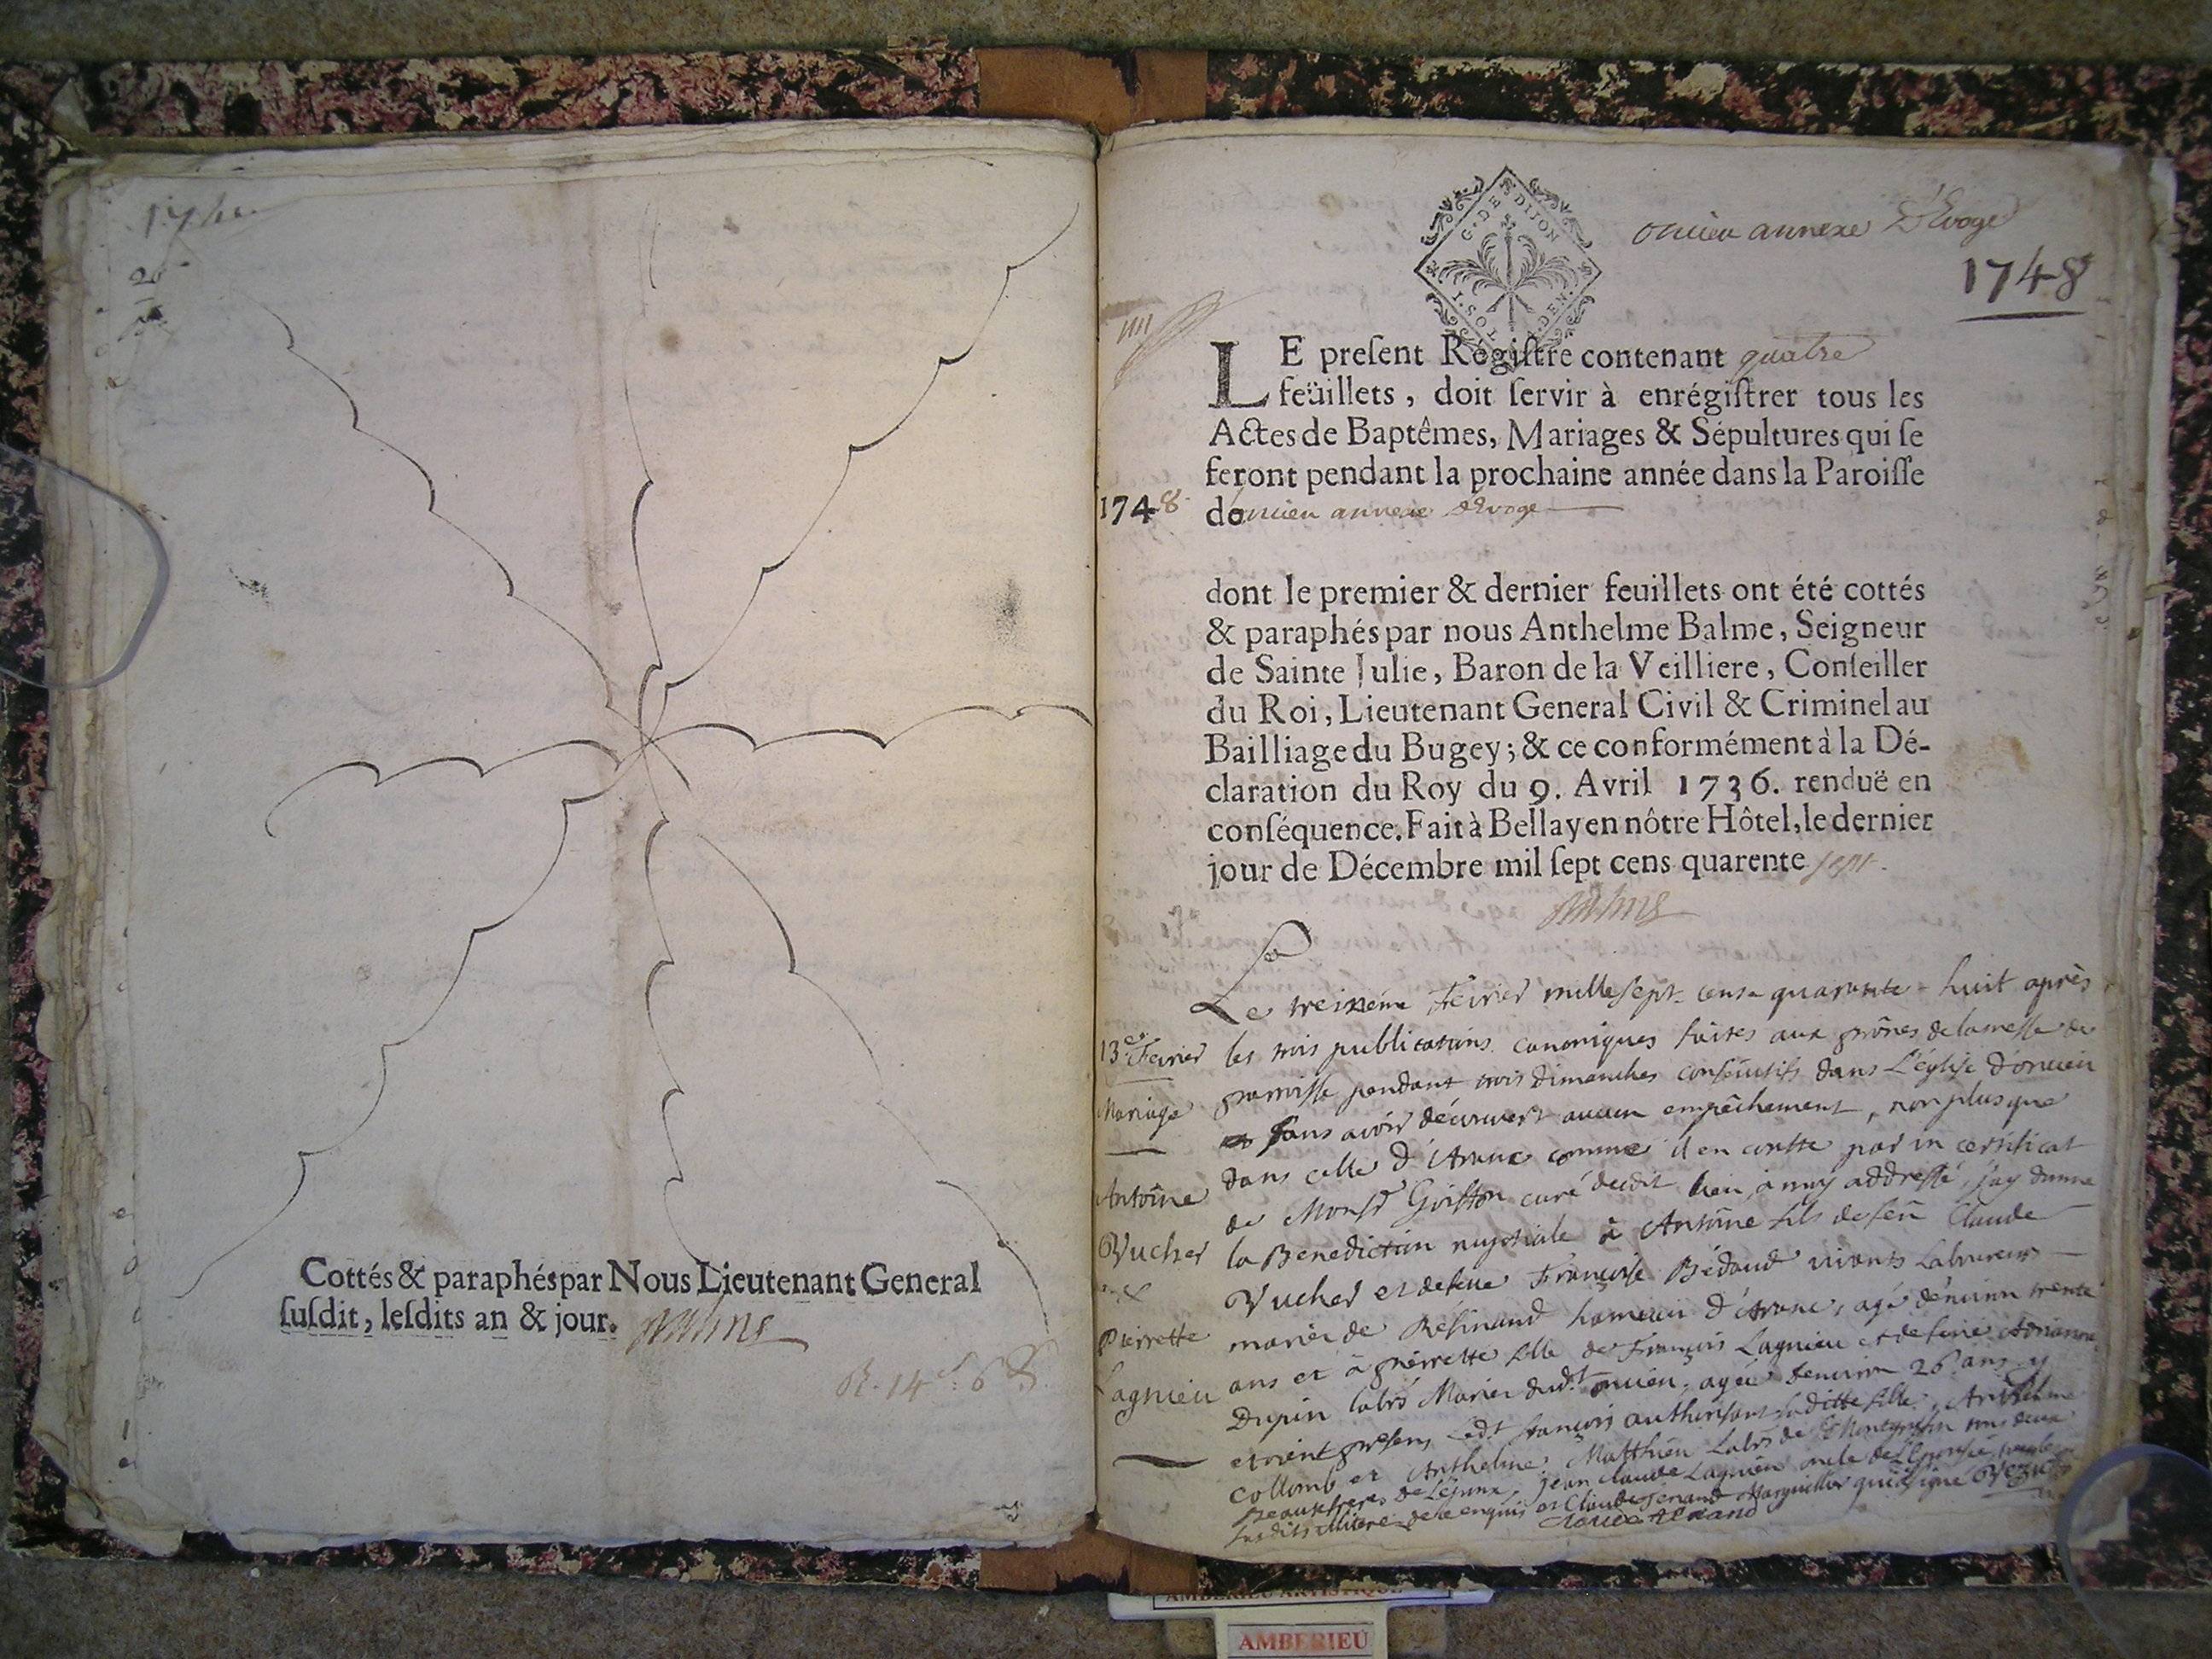 Cottés & paraphés par Nous Lieutenant General
ſuſdit, leſdits an & jour.
G. DE DIJON
oncieu annexe D'Evoge
1748
LE preſent Régiſtre contenant quatre
feüillets, doit ſervir à enrégiſtrer tous les
Actes de Baptêmes, Mariages & Sépultures qui ſe
feront pendant la prochaine année dans la Paroiſſe
1748
d'oncieu annexe d'Evoge
dont le premier & dernier feuillets ont été cottés
& paraphés par nous Anthelme Balme, Seigneur
de Sainte Julie, Baron de la Veilliere, Conſeiller
du Roi, Lieutenant General Civil & Criminel au
Bailliage du Bugey; & ce conformément à la Dé-
claration du Roy du 9. Avril 1736. renduë en
conſéquence. Fait à Bellay en nôtre Hôtel, le dernier
jour de Décembre mil ſept cens quarente sept.
13e Fevrier
Mariage
Antoine
Vucher
&
Pierrette
Lagnieu
Le treizéme Fevrier mille sept cens quarante-huit après
les trois publications canoniques faites aux prônes de la messe de
paroisse pendant trois dimanches consécutifs dans L'église d'oncieu
sans avoir découvert aucun empêchement, non plus que
dans celle d'Aranc comme il en conste par un certificat
de Monsr Goiffon curé dudit lieu, à moy addressé, j'ay donné
la Benediction nuptiale à Antoine fils de feû Claude
Vucher et de feue Françoise Bédaud vivants Laboureurs
mariés de Résinand hameau d'Aranc, agé d'environ trente
ans et à pierrette fille de François Lagnieu et de feüe Adrianne
Dupin labrs Mariés dudt oncieu, agée d'environ 26 ans. y
etoient presens Ledt françois authorisant sa ditte fille, Anthelme
collomb et Anthelme Matthieu Labrs de Montgriffon tous deux
Beauxfreres de L'Epoux, Jean claude Lagnieu oncle de L'Epousée
susdits illiterés de ce enquis et Claude Jenand Marguillier qui a signé
claude Jenand
AMBERIEU ARTISTIQUE
AMBERIEU